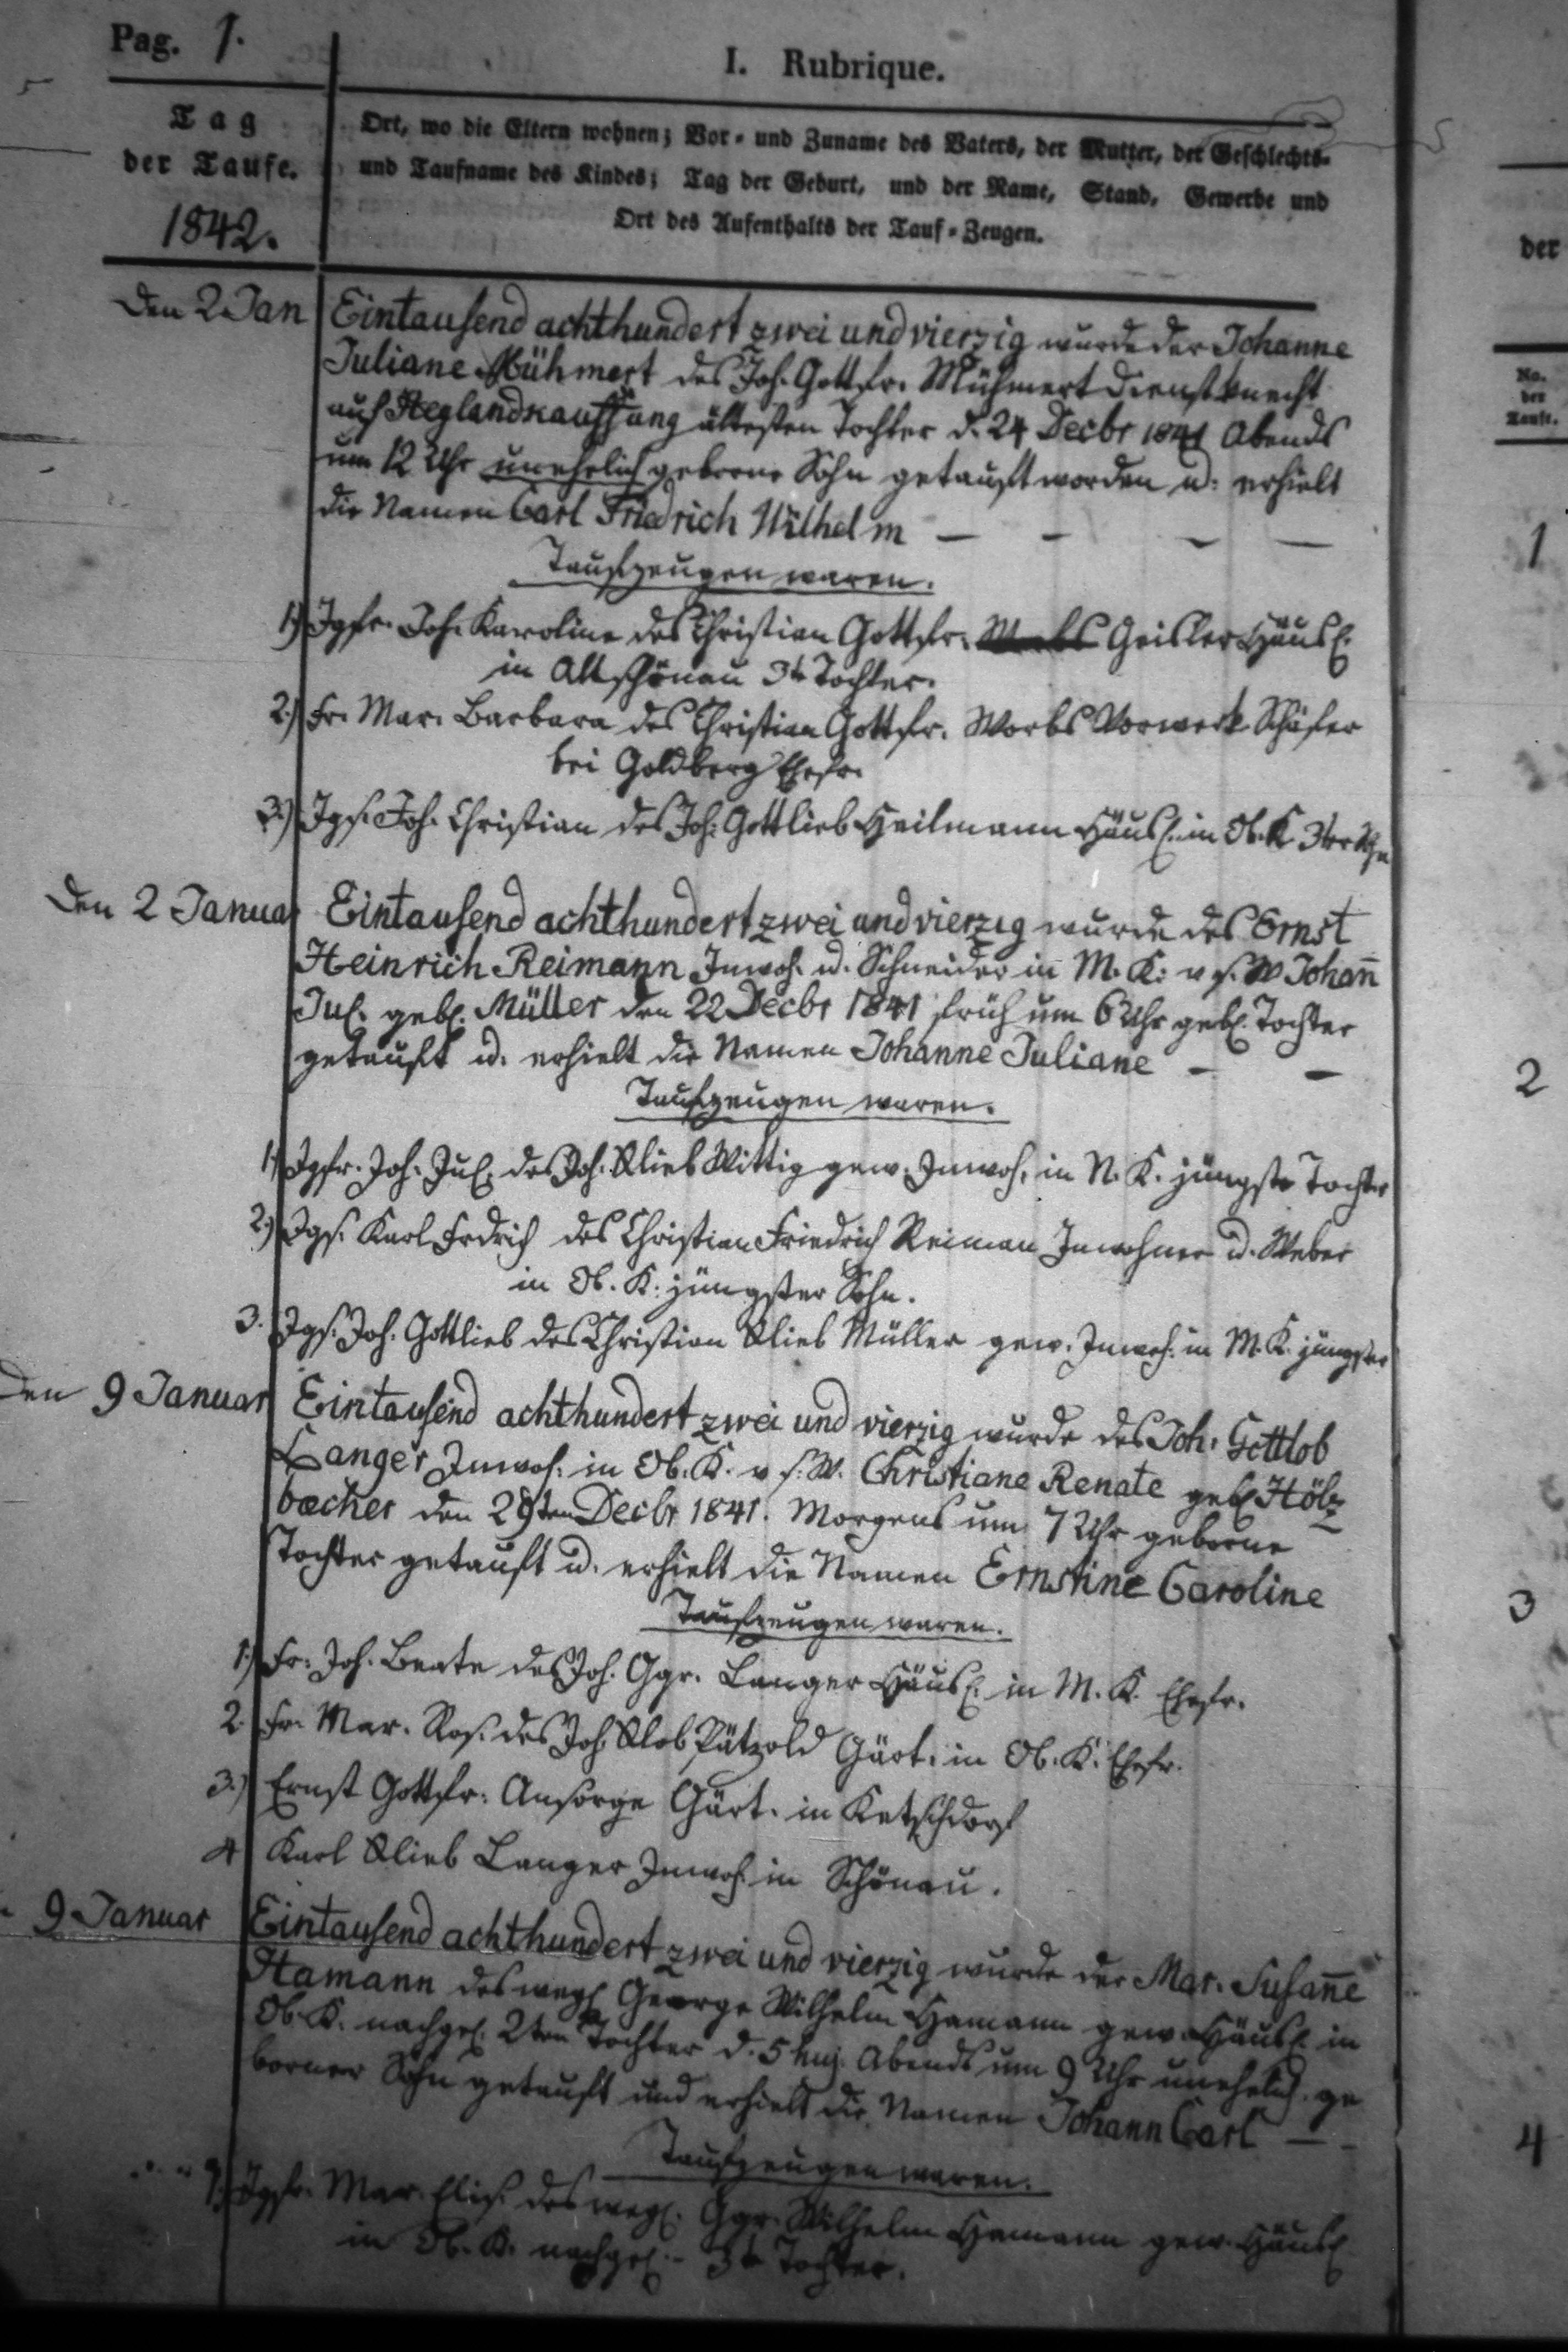 Pag. 1.
I. Rubrique.
Tag
der Taufe.
1842.
Ort, wo die Eltern wohnen; Vor- und Zuname des Vaters, der Mutter, der Geschlechts-
und Taufname des Kindes; Tag der Geburt, und der Name, Stand, Gewerbe und
Ort des Aufenthalts der Tauf-Zeugen.
Den 2 Jan
Eintausend achthundert zwei und vierzig wurde der Johanne
Juliane Mühmert des Joh. Gottfr. Mühmert Dienstknecht
auf ältesten Tochter d. 24 Decbr 1841 Abends
um 12 Uhr unehelich geborne Sohn getauft worden u. erhielt
die Namen Carl Friedrich Wilhelm — — — —
Taufzeugen waren.
1.) Jgfr. Joh. Karoline des Christian Gottfr. Geisler Häusl.
in Altschönau 3te Tochter.
2.) Fr. Mar. Barbara des Christian Gottfr. Worbs Vorwerk Schäfer
bei Goldberg Ehefr.
3.) Jgs. Joh. Christian des Joh. Gottlieb Heilmann Häusl. in Ob. K. 3ter
Den 2 Januar
Eintausend achthundert zwei und vierzig wurde des Ernst
Heinrich Reimann Inwoh. u. Schneider in M. K. v. s. W Johan̄
Jul. gebl. Müller den 22 Decbr 1841 früh um 6 Uhr gebl. Tochter
getauft u. erhielt die Namen Johanne Juliane — —
Taufzeugen waren.
1.) Jgfr. Joh. Jul. des Joh. Glieb Wittig gew. Inwoh. in N. K. jüngste Tochter
2.) Jgs. Karl Frdrich des Christian Friedrich Reiman Inwohner u. Weber
in Ob. K. jüngster Sohn.
3. Jgs. Joh. Gottlieb des Christian Glieb Müller gew. Inwoh. in M. K. jüngster
Den 9 Januar
Eintausend achthundert zwei und vierzig wurde des Joh. Gottlob
Langer Inwoh. in Ob. K. v. s. W. Christiane Renate gebl Hölz
becher den 29ten Decbr 1841. Morgens um 7 Uhr geborne
Tochter getauft u. erhielt die Namen Ernstine Caroline
Taufzeugen waren.
1.) Fr. Joh. Beate des Joh. Ggr. Langer Häusl. in M. K. Ehefr.
2. Fr. Mar. Ros. des Joh. Glob Pätzold Gärt. in Ob. K. Ehefr.
3.) Ernst Gottfr. Ansorge Gärt. in Ketschdorf
4 Karl Glieb Langer Inwoh. in Schönau.
9 Januar
Eintausend achthundert zwei und vierzig wurde der Mar. Susan̄e
Hamann des wegl George Wilhelm Hamann gew. Häusl. in
Ob. K. nachgel. 2ten Tochter d. 5 huj. Abends um 9 Uhr unehelich ge
borner Sohn getauft und erhielt die Namen Johann Carl — —
Taufzeugen waren.
1.) Jgfr. Mar. Elis. des wegl. Ggr. Wilhelm Hamann gew. Häusl
in Ob. K. nachgel. 3te Tochter.
der
No.
der
Taufe.
1
2
3
4